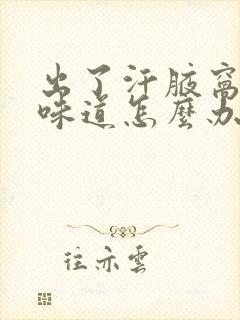 出了汗腋窩
味道怎麼办
往亦雲